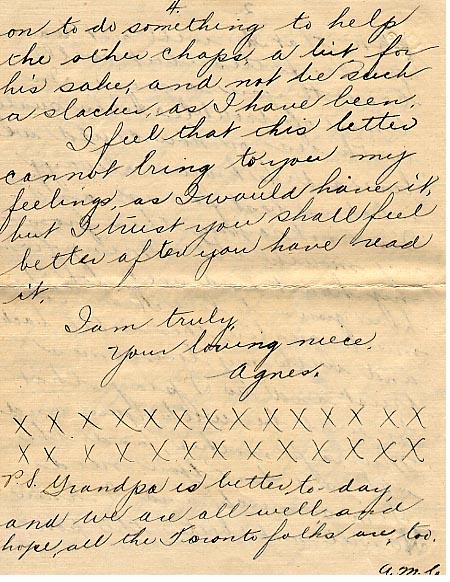 4.
on to do something to help
the other chaps, a bit for
his sake, and not be such
a slacker, as I have been.
I feel that this letter
cannot bring to you my
feelings, as I would have it,
but I trust you shall feel
better after you have read
it.
I am truly,
Your loving niece.
Agnes.
X X X X X X X X X X X X X X X
X X X X X X X X X X X X X X X
P.S. Grandpa is better to-day
and we are all well and
hope, all the Toronto folks are, too.
A.M.